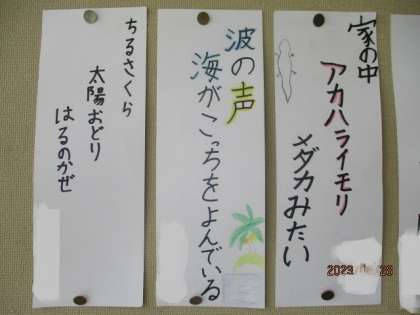 家の中
アカハライモリ
メダカみたい
波の声
海がこっちをよんでいる
ちるさくら
太陽おどり
はるのかぜ